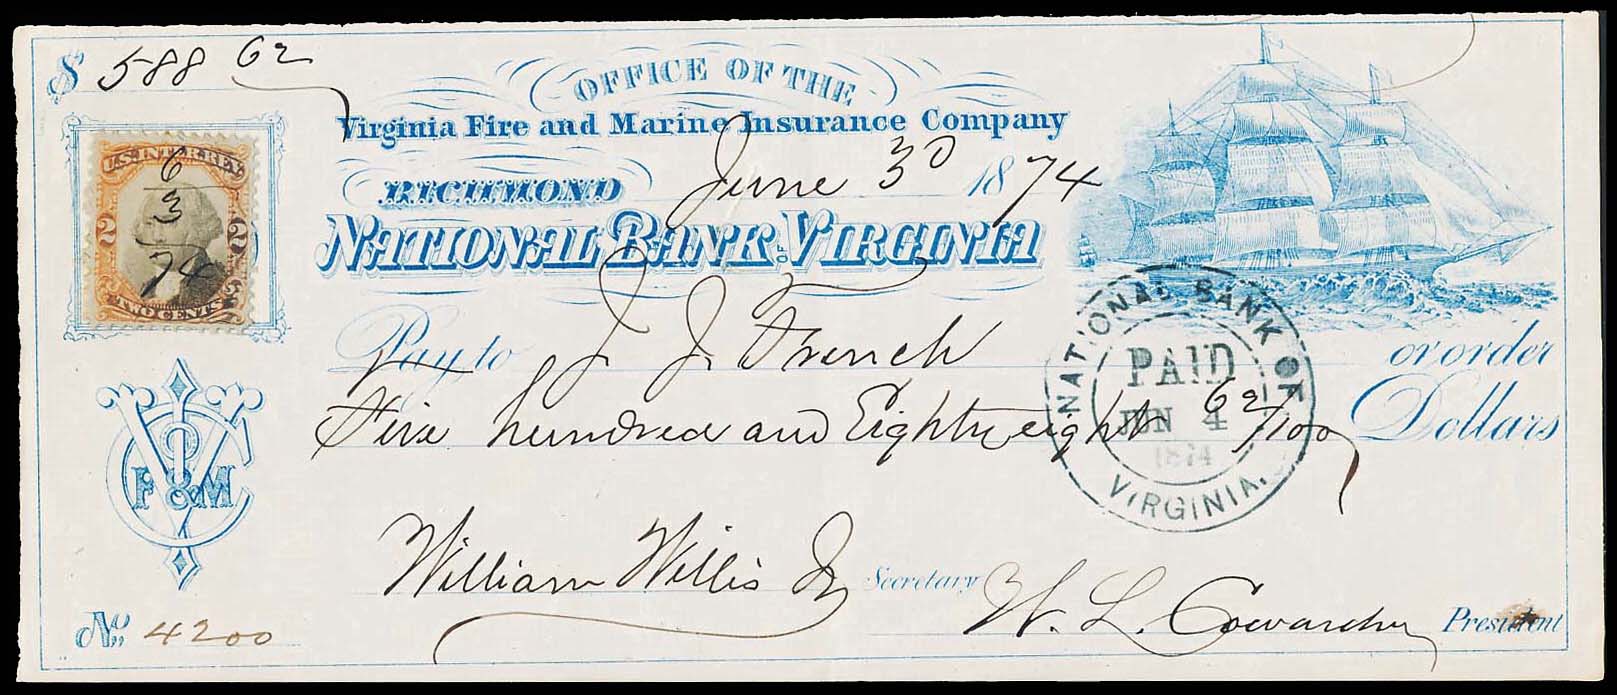 $ 588 62
OFFICE OF THE
Virginia Fire and Marine Insurance Company
RICHMOND June 3D 1874
NATIONAL BANK OF VIRGINIA
U.S. INTER. REV.
6
3
74
2 2
TWO CENTS
Pay to J. J. French or order
Five hundred and Eighty eight 62/100 Dollars
NATIONAL BANK OF
PAID
JUN 4
1874
VIRGINIA.
V C
F & M
William Willis Jr Secretary
W. L. Cowardin President
No. 4200